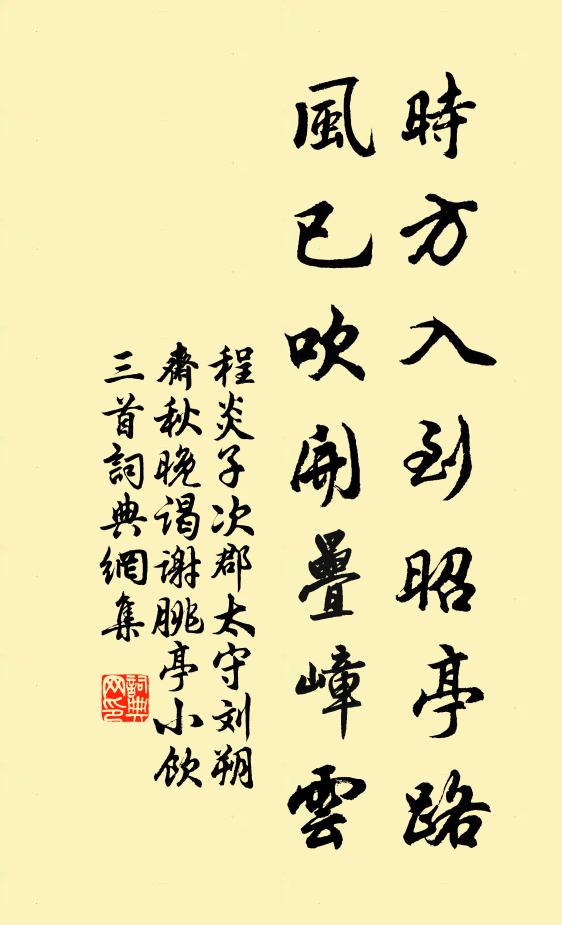 時方入到昭亭路
風已吹開疊嶂雲
程炎子次郡太守刘朔
齋秋晚谒谢朓亭小飲
三首詞典網集
詞典网印